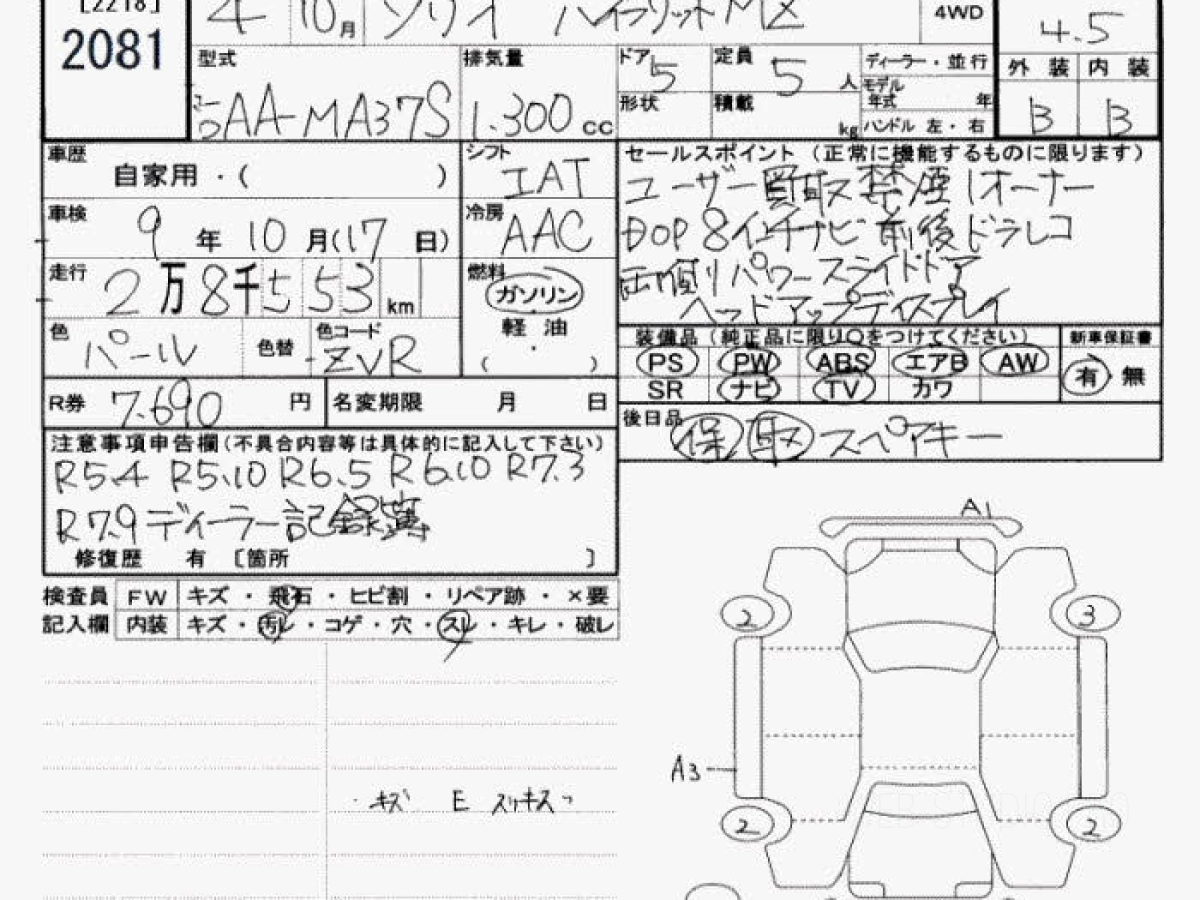 [2218]
2081
4 10月 ソリオ ハイブリッド MZ 4WD
4.5
型式 AA-MA37S
排気量 1.300 cc
ドア 5
定員 5 人
形状
積載 kg
ディーラー・並行
モデル年式 年
ハンドル 左・右
外装 内装
B B
車歴 自家用・( )
シフト IAT
車検 9年10月(17日)
冷房 AAC
走行 2万8千553km
燃料 ガソリン
軽油
( )
色 パール 色替 色コード ZVR
R券 7.690 円 名変期限 月 日
セールスポイント(正常に機能するものに限ります)
ユーザー買取 禁煙 1オーナー
DOP 8インチナビ 前後ドラレコ
両側パワースライドドア
ヘッドアップディスプレイ
装備品(純正品に限り○をつけてください) 新車保証書
PS PW ABS エアB AW
SR ナビ TV カワ
有 無
後日品 保 取 スペアキー
注意事項申告欄(不具合内容等は具体的に記入して下さい)
R5.4 R5.10 R6.5 R6.10 R7.3
R7.9 ディーラー記録簿
修復歴 有 〔箇所 〕
検査員 FW キズ・飛石・ヒビ割・リペア跡・×要
記入欄 内装 キズ・汚レ・コゲ・穴・スレ・キレ・破レ
A1
2 3
A3
2 2
キズ E スリキズ